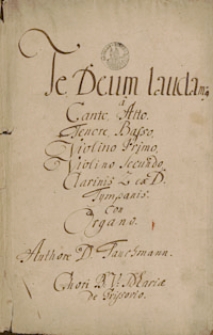 Te Deum laudam9
à
Canto Alto.
Tenore Basso,
Violino Primo,
Violino Secundo,
Clarinis 2 ex D.
Tympanis.
con
Organo.
Authore D.
Chori B V Mariæ
De